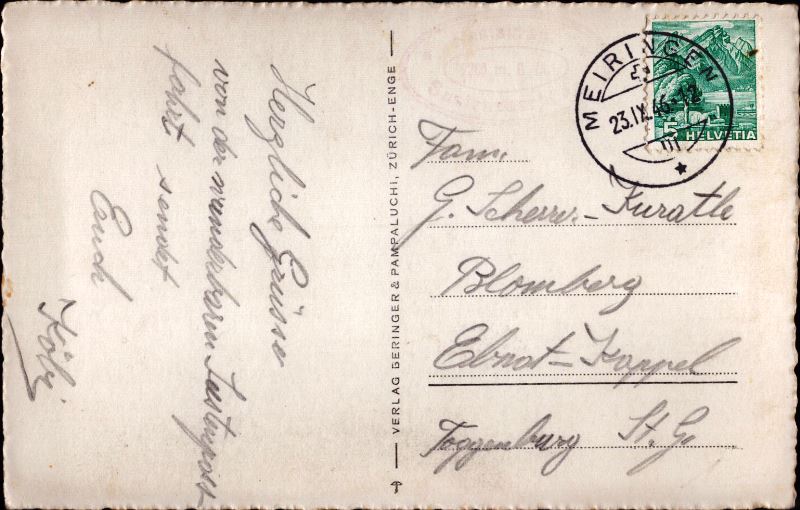 Herzliche Grüsse
von der wunderbaren Sustenpost-
fahrt sendet
Euch
Köbi
VERLAG BERINGER & PAMPALUCHI, ZÜRICH-ENGE
MEIRINGEN
23.IX.46.-12
5 HELVETIA
Fam.
G. Scherrer-Kuratle
Blomberg
Ebnat-Kappel
Toggenburg St. G.